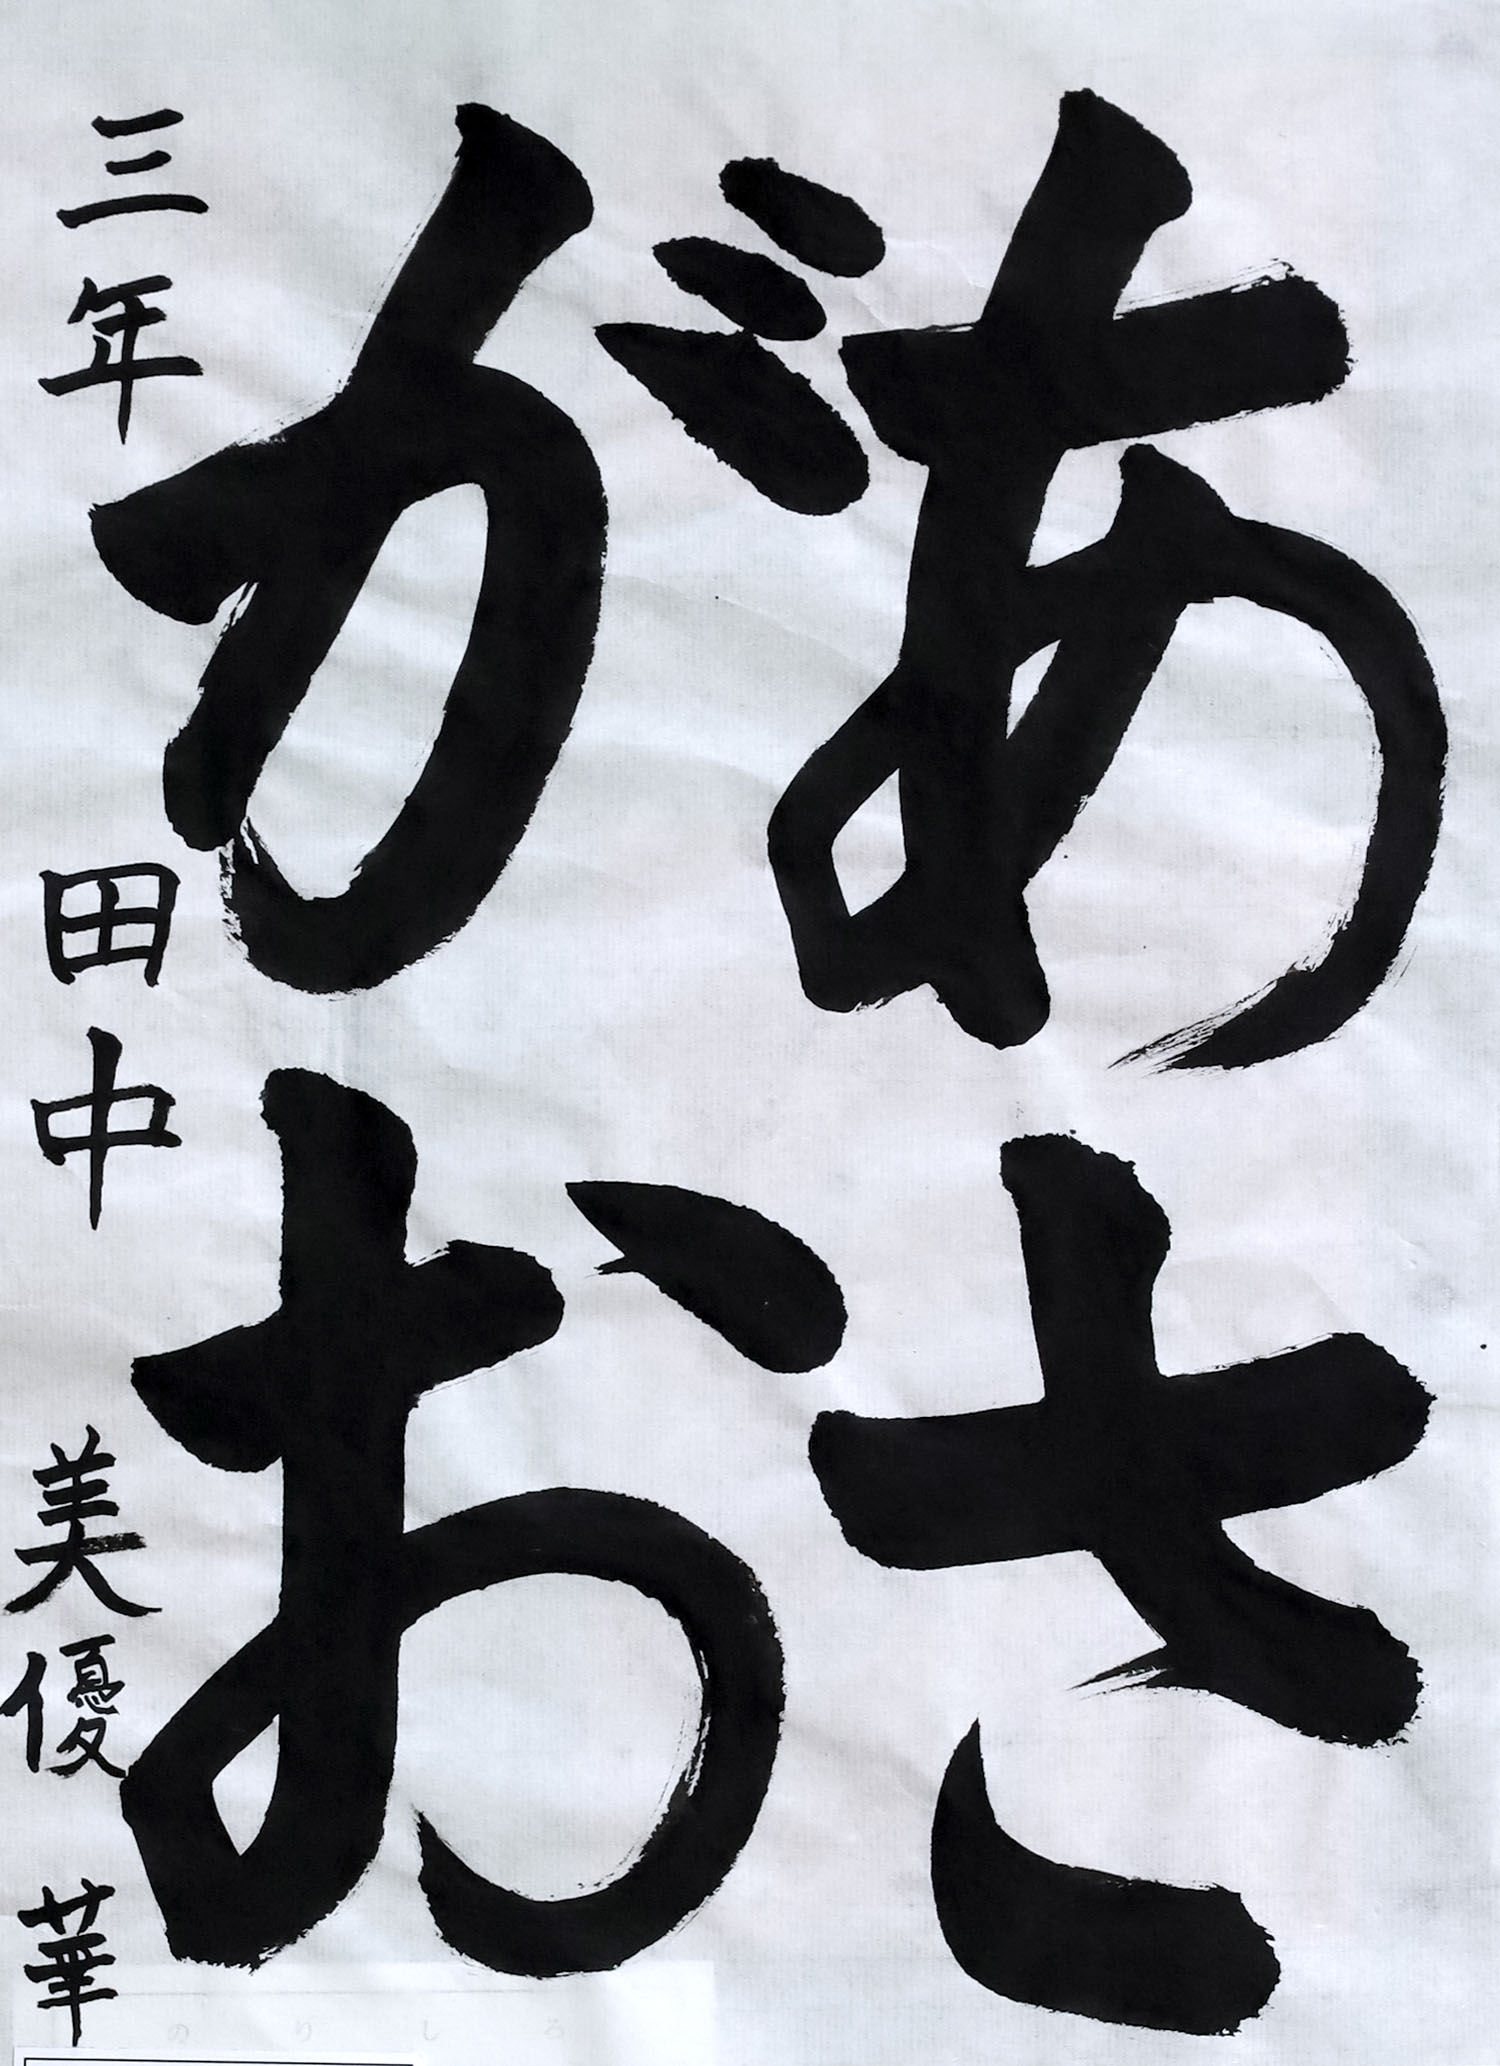 あさ
がお
三年 田中 美優華
のりしろ